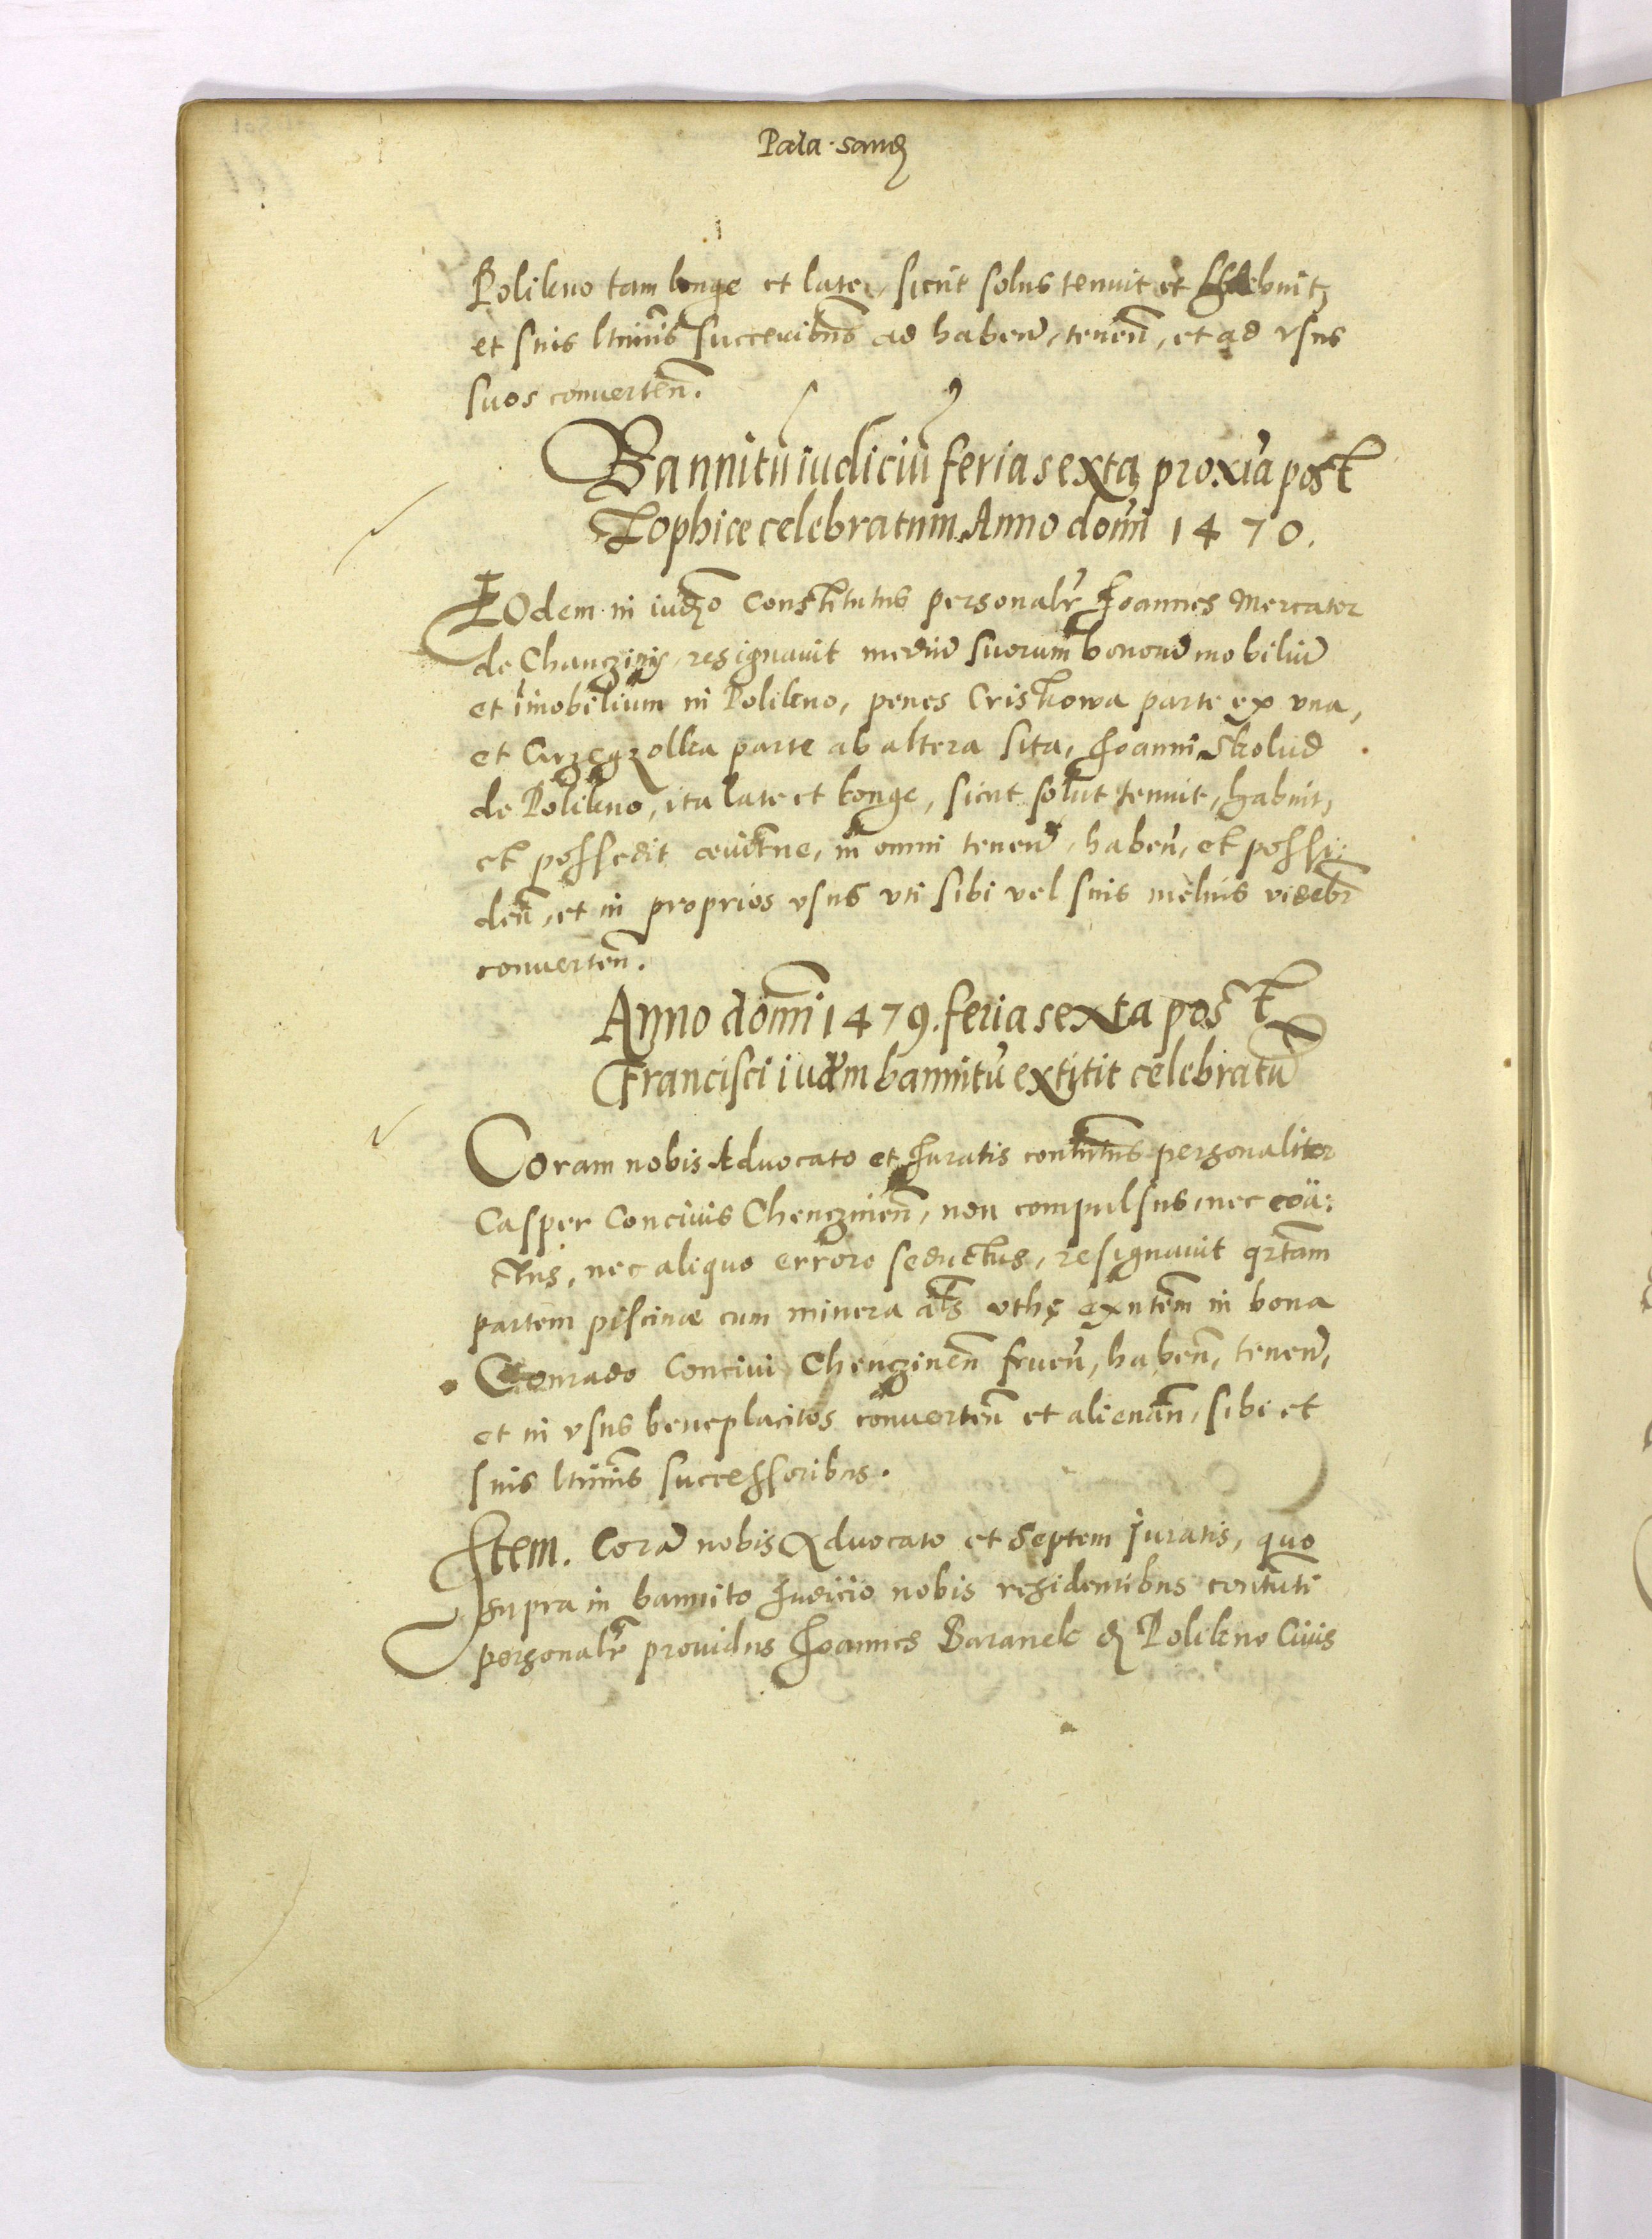 Pala. sand
Polikno tam longe et late, sicut solus tenuit et habuit,
et suis ltimis succeuibus ad haben, tenen, et ad vsus
suos conuerten.
Bannitu iudiciu feria sexta proxia post
Sophiæ celebratum Anno domi 1470.
EOdem in iudo Constitutus personalr Joannes Mercator
de Chanczinij, resignauit mediu suorum bonoru mobiliu
et imobilium in Polikno, penes Criskowa parte ex vna,
et Grzegzolka parte ab altera sita, Joanni Skolud
de Polikno, ita late et longe, sicut solut tenuit, habuit,
et possedit æuitne, in omni tenen, haben, et possi:
den, et in proprios vsus vti sibi vel suis melius videbr
conuerten.
Anno domi 1479. feria sexta post
Francisci iudm bannitu extitit celebratu
Coram nobis Aduocato et Juratis contutus personaliter
Casper Conciuis Chenczinen, non compulsus, nec coä:
ctus, nec aliquo errore seductus, resignauit qrtam
partem piscinæ cum minera als vthę exntem in bona
Conrado Conciui Chenczinen fruen, haben, tenen,
et in vsus beneplacitos conuerten et alienan, sibi et
suis ltimis successoribus.
Item. Cora nobis Aduocato et Septem Juratis, quo
supra in bannito Judicio nobis residentibus contuti
personalr prouidus Joannes Baranek d Polikno Ciuis